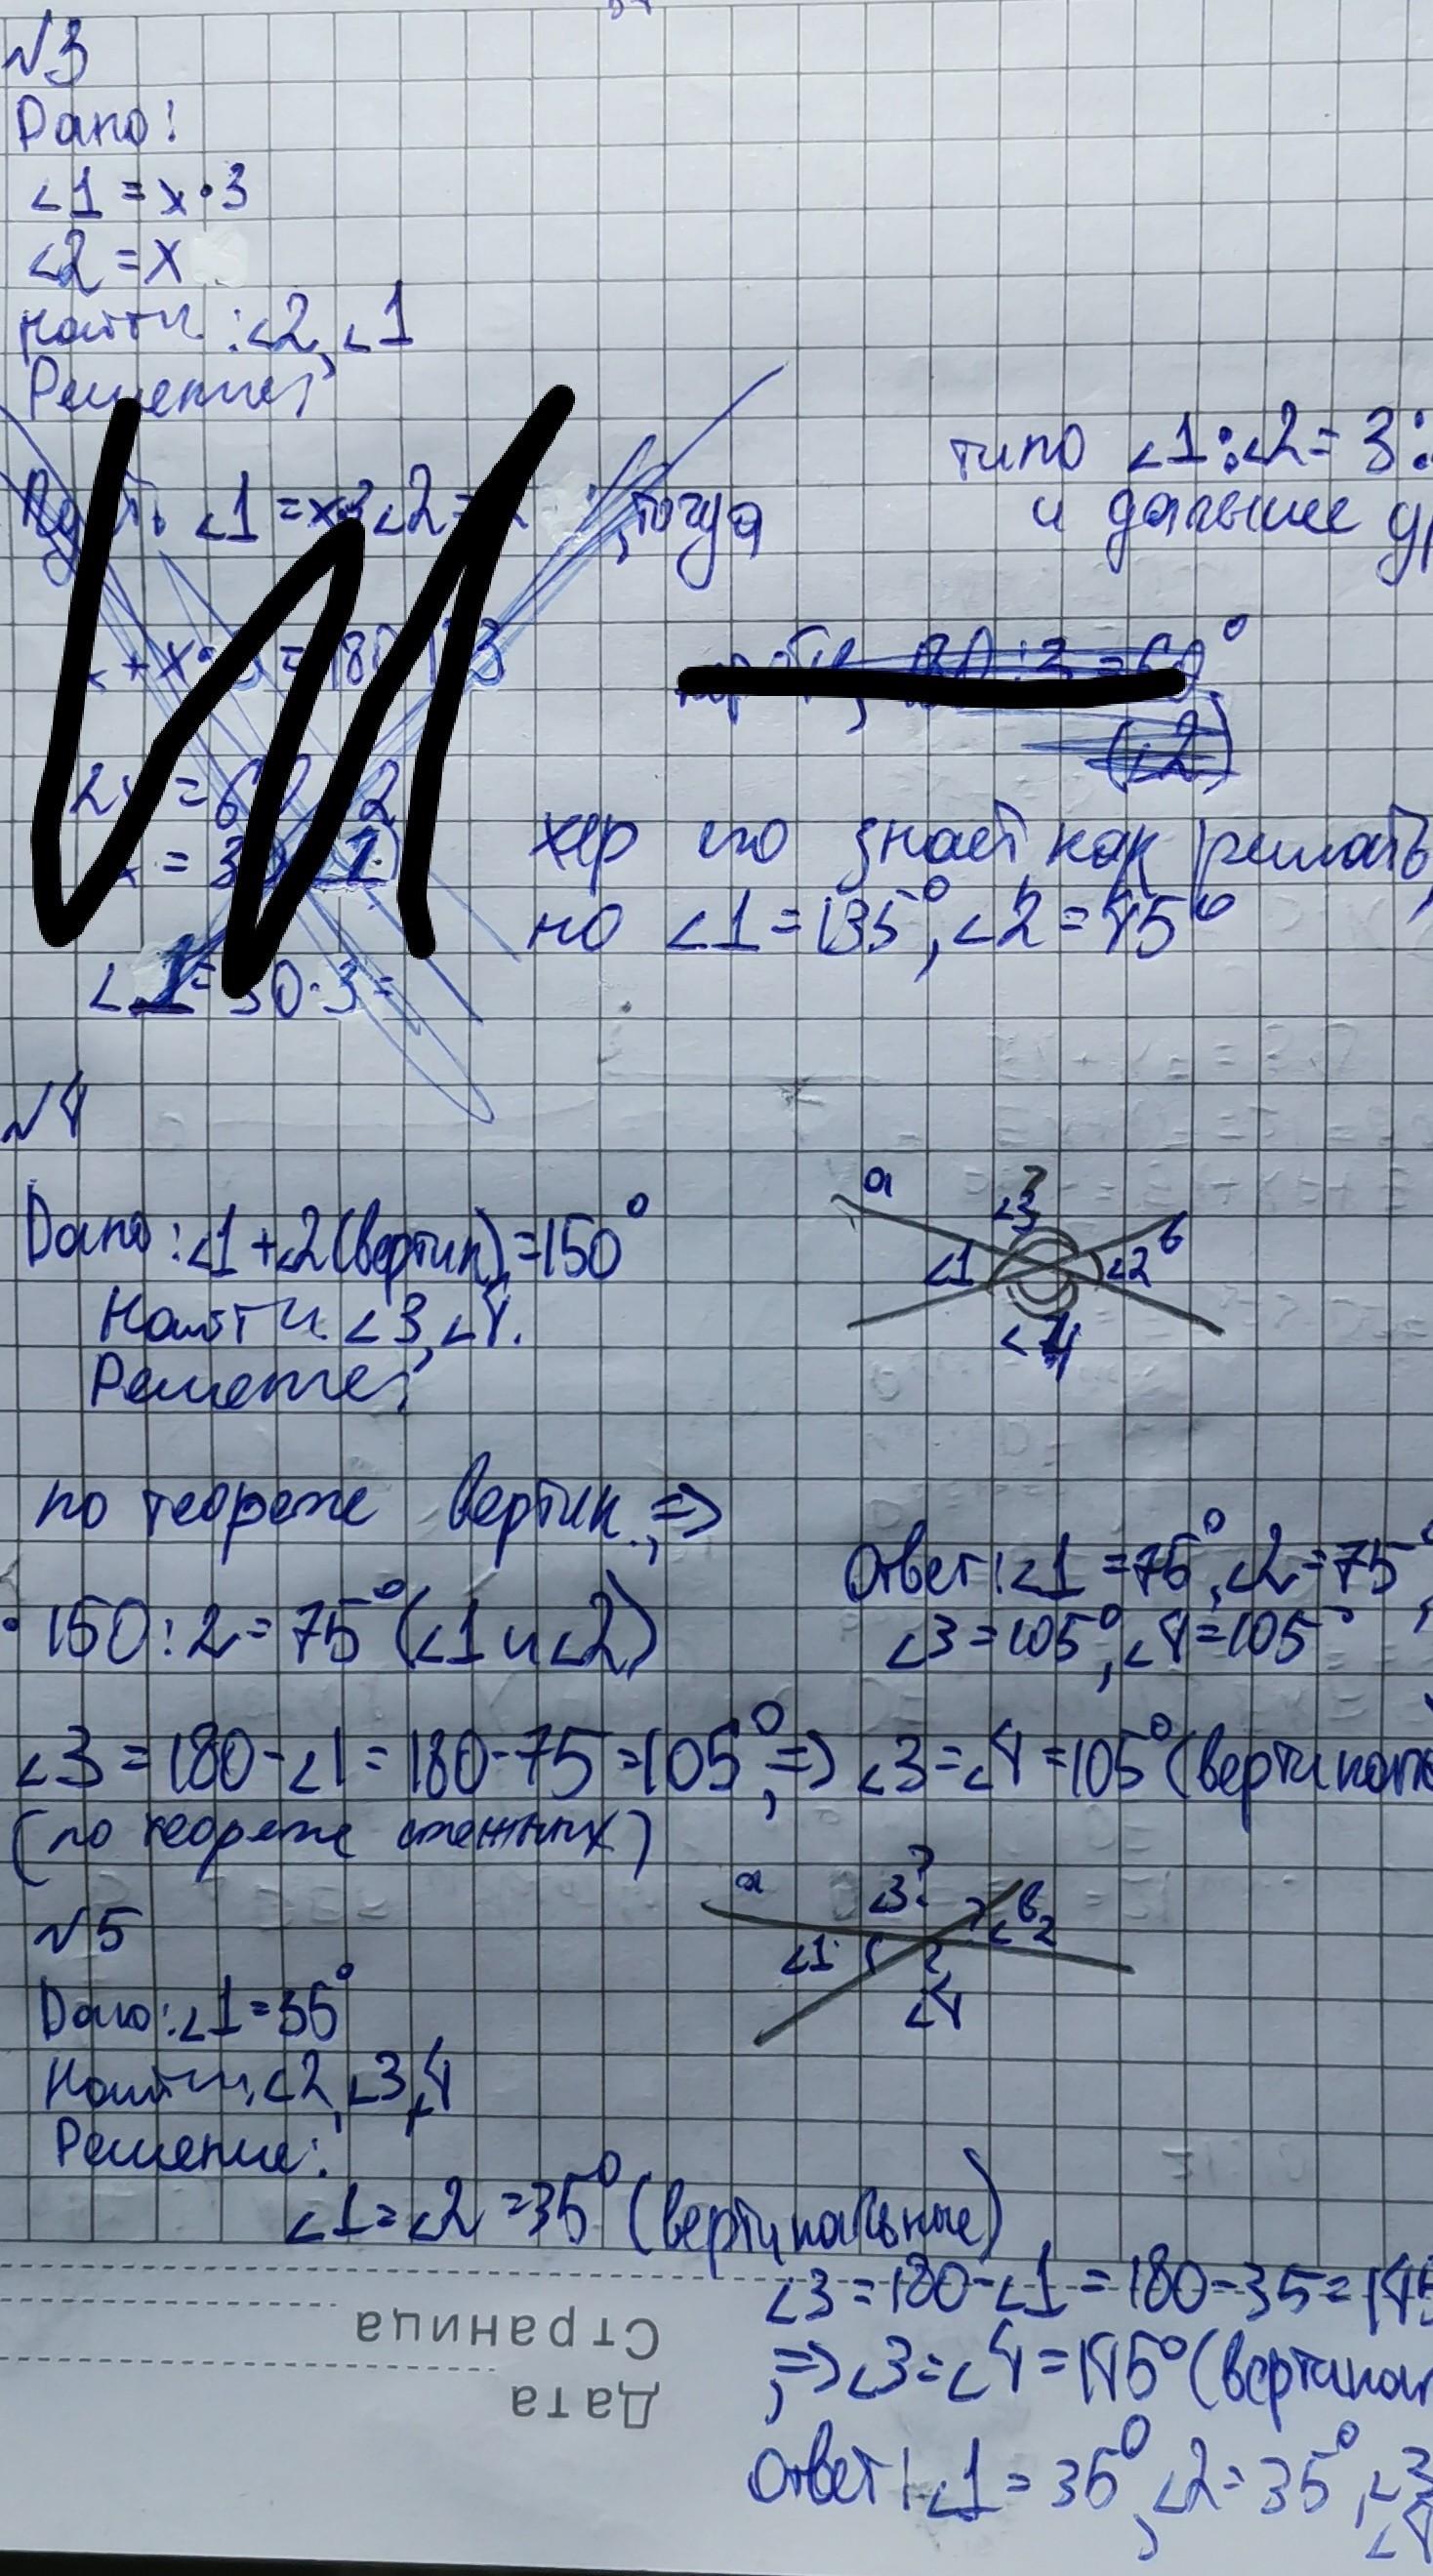 №3
Дано:
∠1 = x·3
∠2 = x
Найти: ∠2, ∠1
Решение:
типо ∠1:∠2 = 3:
и дальше ур
Пусть ∠1 = x·3 ∠2 = , тогда
(∠2)
2x = 60
x = 3
∠1 = 30·3 =
хер его знает как решать,
но ∠1 = 135°, ∠2 = 45°
№4
Дано: ∠1 + ∠2 (вертик) = 150°
Найти ∠3, ∠4.
Решение:
a ∠3 ?
∠1 ∠2 b
∠4
по теореме вертик., =>
150:2 = 75° (∠1 и ∠2)
Ответ: ∠1 = 75°, ∠2 = 75°,
∠3 = 105°, ∠4 = 105°
∠3 = 180 - ∠1 = 180 - 75 = 105°, => ∠3 = ∠4 = 105° (вертикаль
(по теореме смежных)
№5
a ∠3? b
∠1 ∠2
∠4
Дано: ∠1 = 35°
Найти ∠2, ∠3, ∠4
Решение:
∠1 = ∠2 = 35° (вертикальные)
∠3 = 180 - ∠1 = 180 - 35 = 145
, => ∠3 = ∠4 = 145° (вертикал
Ответ: ∠1 = 35°, ∠2 = 35°, ∠3
∠4
Страница
Дата